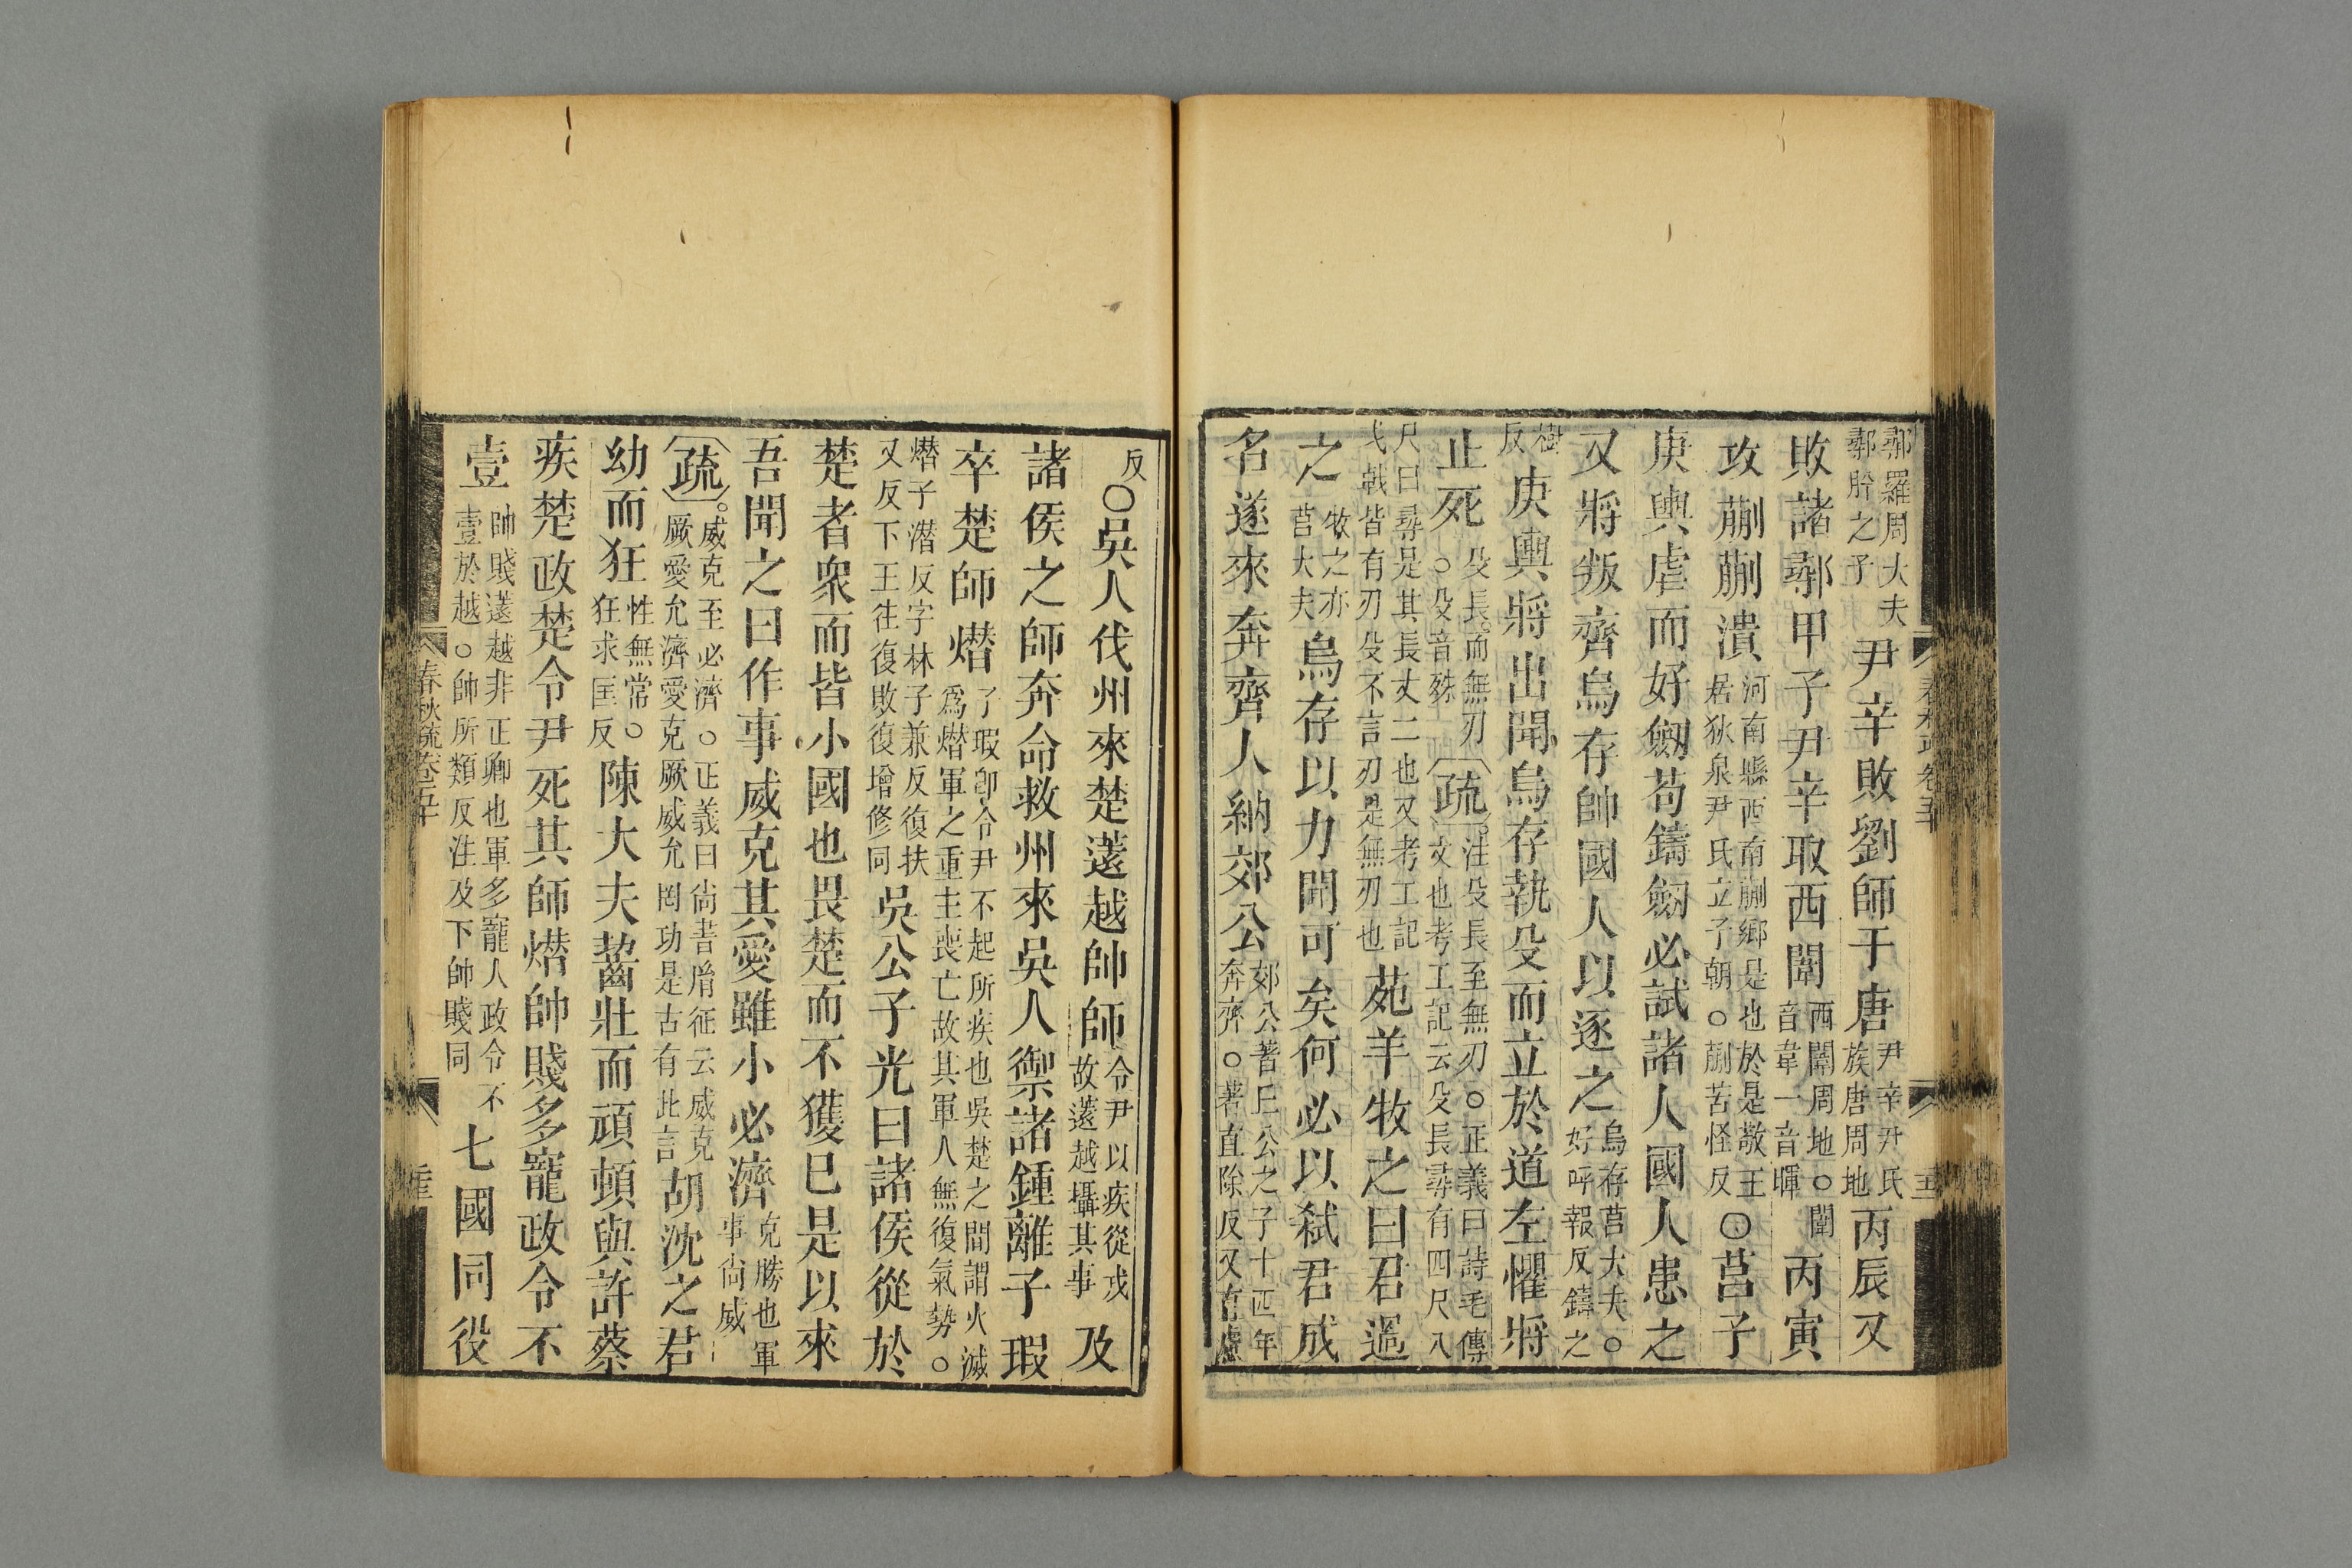 鄩羅周大夫鄩肸之子尹辛敗劉師于唐尹辛尹氏族唐周地丙辰又
敗諸鄩甲子尹辛取西闈西闈周地○闈音韋一音暉丙寅
攻蒯蒯潰河南縣西南蒯鄉是也於是敬王居狄泉尹氏立子朝○蒯苦怪反○莒子
庚輿虐而好劒苟鑄劒必試諸人國人患之
又將叛齊烏存帥國人以逐之烏存莒大夫○好呼報反鑄之
樹反庚輿將出聞烏存執殳而立於道左懼將
止死殳長而無刃○殳音殊疏注殳長至無刃○正義曰詩毛傳文也考工記云殳長尋有四尺八
尺曰尋是其長丈二也又考工記戈戟皆有刃殳不言刃是無刃也苑羊牧之曰君過
之牧之亦莒大夫烏存以力聞可矣何必以弒君成
名遂來奔齊人納郊公郊公著丘公之子十四年奔齊○著直除反又直慮
反○吳人伐州來楚薳越帥師令尹以疾從戎故薳越攝其事及
諸侯之師奔命救州來吳人禦諸鍾離子瑕
卒楚師熸子瑕卽令尹不起所疾也吳楚之間謂火滅爲熸軍之重主喪亡故其軍人無復氣勢○
熸子潛反字林子兼反復扶又反下王徃復敗復增修同吳公子光曰諸侯從於
楚者衆而皆小國也畏楚而不獲已是以來
吾聞之曰作事威克其愛雖小必濟克勝也軍事尙威
疏威克至必濟○正義曰尙書胤征云威克厥愛允濟愛克厥威允罔功是古有此言胡沈之君
幼而狂性無常○狂求匡反陳大夫齧壯而頑頓與許蔡
疾楚政楚令尹死其師熸帥賤多寵政令不
壹帥賤薳越非正卿也軍多寵人政令不壹於越○帥所類反注及下帥賤同七國同役
春秋疏卷五十